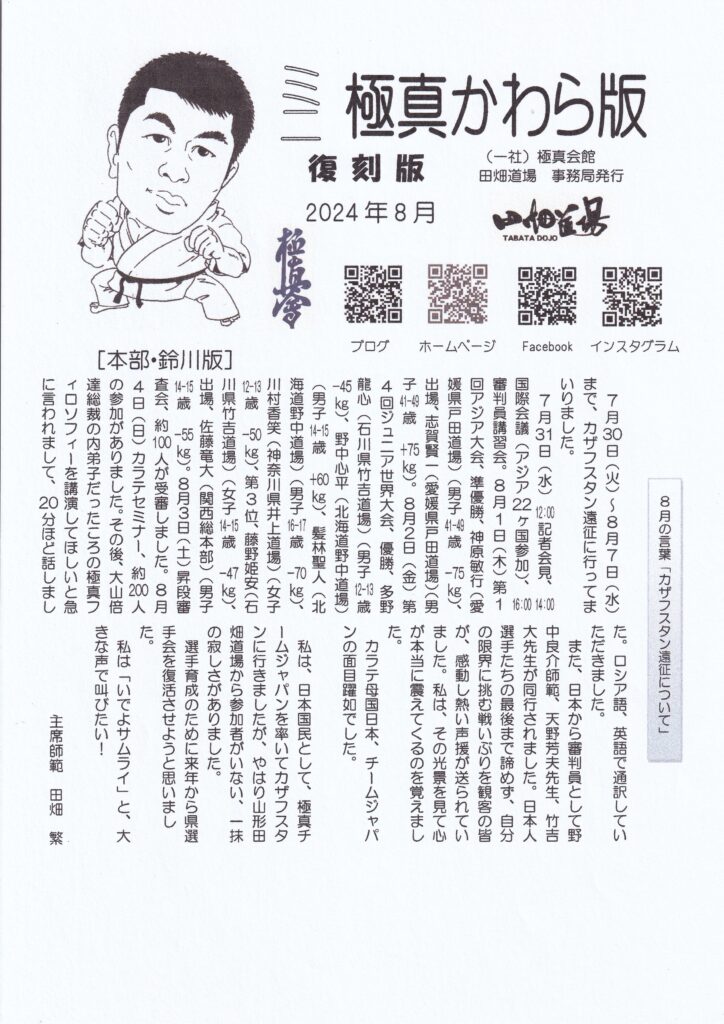 ミニ 極真かわら版
復刻版
（一社）極真会館
田畑道場　事務局発行
2024年8月
田畑道場
TABATA DOJO
極真会
ブログ
ホームページ
Facebook
インスタグラム
[本部・鈴川版]
８月の言葉「カザフスタン遠征について」
　７月30日（火）～８月７日（水）
まで、カザフスタン遠征に行ってま
いりました。
　７月31日（水）12:00記者会見、14:00
国際会議（アジア22ヶ国参加）、16:00
審判員講習会。８月１日（木）第１
回アジア大会、準優勝、神原敏行（愛
媛県戸田道場）（男子41-49歳　-75kg）、
出場、志賀賢一（愛媛県戸田道場）（男
子41-49歳　+75kg）。８月２日（金）第
４回ジュニア世界大会、優勝、多野
龍心（石川県竹吉道場）（男子12-13歳
-45kg）、野中心平（北海道野中道場）
（男子14-15歳　+60kg）、髪林聖人（北
海道野中道場）（男子16-17歳　-70kg）、
川村香笑（神奈川県井上道場）（女子
12-13歳　-50kg）、第３位、藤野姫安（石
川県竹吉道場）（女子14-15歳　-47kg）、
出場、佐藤竜大（関西総本部）（男子
14-15歳　-55kg）。８月３日（土）昇段審
査会、約100人が受審しました。８月
４日（日）カラテセミナー、約200人
の参加がありました。その後、大山倍
達総裁の内弟子だったころの極真フ
ィロソフィーを講演してほしいと急
に言われまして、20分ほど話しまし
た。ロシア語、英語で通訳してい
ただきました。
　また、日本から審判員として野
中良介師範、天野芳夫先生、竹吉
大先生が同行されました。日本人
選手たちの最後まで諦めず、自分
の限界に挑む戦いぶりを観客の皆
が、感動し熱い声援が送られてい
ました。私は、その光景を見て心
が本当に震えてくるのを覚えまし
た。
　カラテ母国日本、チームジャパ
ンの面目躍如でした。
　私は、日本国民として、極真チ
ームジャパンを率いてカザフスタ
ンに行きましたが、やはり山形田
畑道場から参加者がいない、一抹
の寂しさがありました。
　選手育成のために来年から県選
手会を復活させようと思いまし
た。
　私は「いでよサムライ」と、大
きな声で叫びたい！
主席師範　田畑　繁